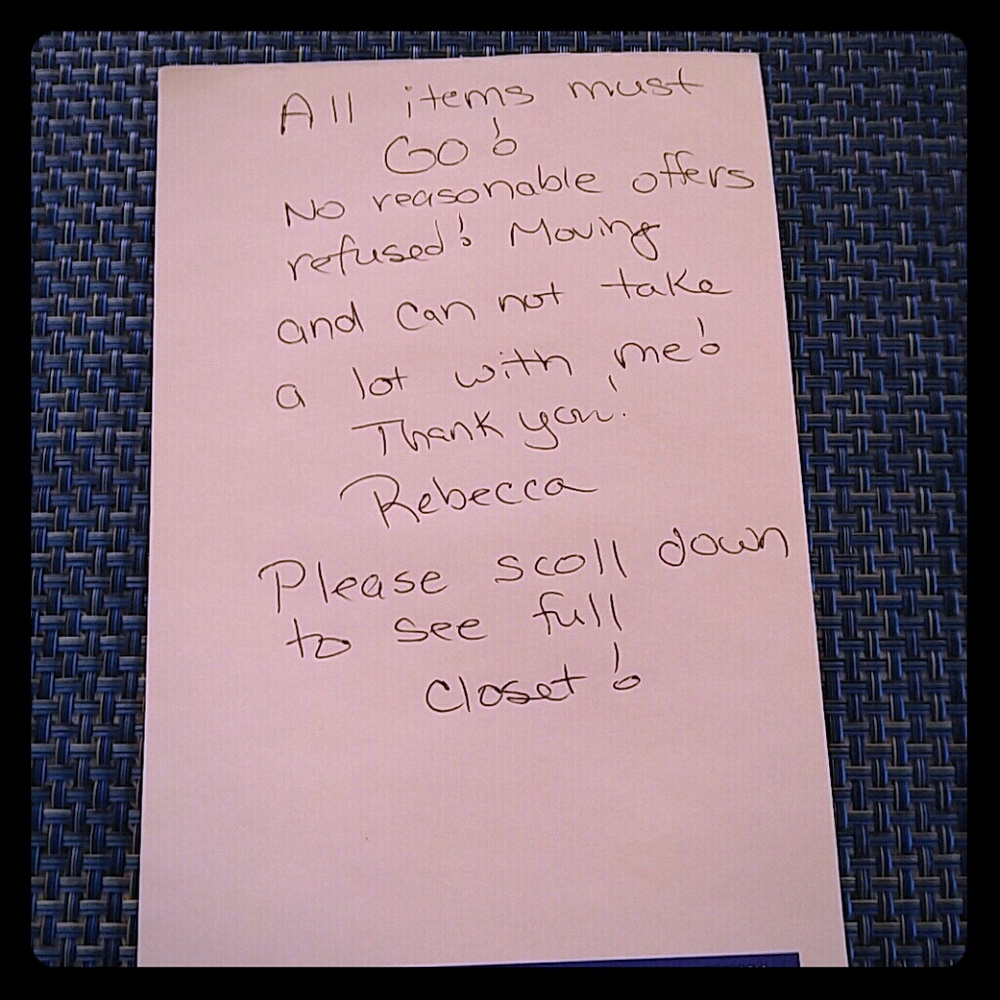 All items must
Go!
No reasonable offers
refused! Moving
and can not take
a lot with me!
Thank you!
Rebecca
Please scoll down
to see full
Closet!